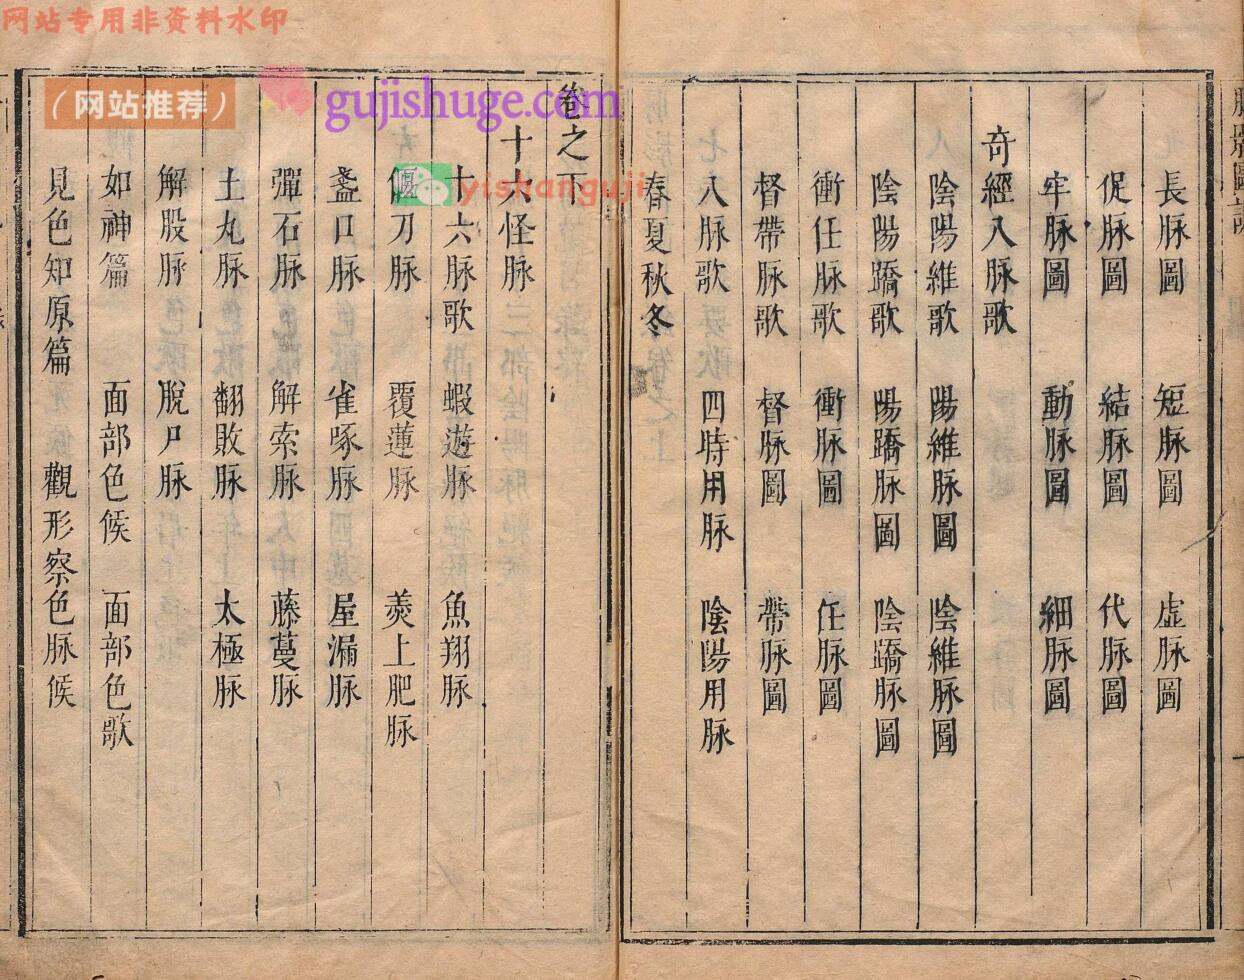 网站专用非资料水印
(网站推荐)
gujishuge.com
yishanguji
長脉圖 短脉圖 虛脉圖
促脉圖 結脉圖 代脉圖
牢脉圖 動脉圖 細脉圖
奇經八脉歌
陰陽維歌 陽維脉圖 陰維脉圖
陰陽蹻歌 陽蹻脉圖 陰蹻脉圖
衝任脉歌 衝脉圖 任脉圖
督帶脉歌 督脉圖 帶脉圖
八脉歌 四時用脉 陰陽用脉
春夏秋冬
卷之下
十六怪脉
十六脉歌 蝦遊脉 魚翔脉
偃刀脉 覆蓮脉 羮上肥脉
盞口脉 雀啄脉 屋漏脉
彈石脉 解索脉 藤蔓脉
土丸脉 翻敗脉 太極脉
解股脉 脫尸脉
如神篇 面部色候 面部色歌
見色知原篇 觀形察色脉候